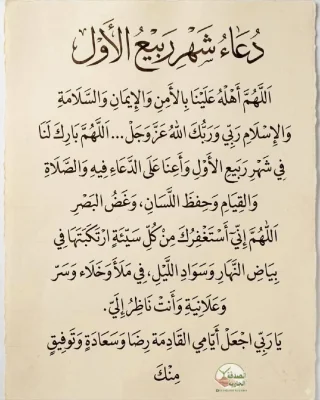 دُعَاءُ شَهْرِ رَبِيعُ الأَوَّل
اَللَّهُمَّ أَهْلِهُ عَلَيْنَا بِالأَمنِ وَالإِيمَانِ وَالسَّلَامَةِ
وَالإِسْلَامِ رَبِّي وَرَبُّكَ اللهُ عَزَّ وَجَلَّ... اَللَّهُمَّ بَارِكْ لَنَا
فِي شَهْرِ رَبِيعِ الأَوَّلِ وَأَعِنَا عَلَى الدُّعَاءِ فِيهِ وَالصَّلَاةِ
وَالقِيَامِ وَحِفظَ اللَّسَانِ، وَغَضُّ البَصَرِ
اَللَّهُمَّ إِنِّي أَسْتَغْفِرُكَ مِنْ كُلِّ سَيِّئَةٍ ارْتَكَبْتَهَا فِي
بِيَاضِ النَّهَارِ وَسَوَادِ اللَّيْلِ، فِي مَلَأَ وَخَلَاء وَسَرّ
وَعَلَانِيَة وَأَنْتَ نَاظِرُ إِلَيَّ.
يَا رَبِّي اجْعَلْ أَيَّامِي القَادِمَة رِضَا وَسَعَادَةٍ وَتَوفِيقٍ
مِنْكَ